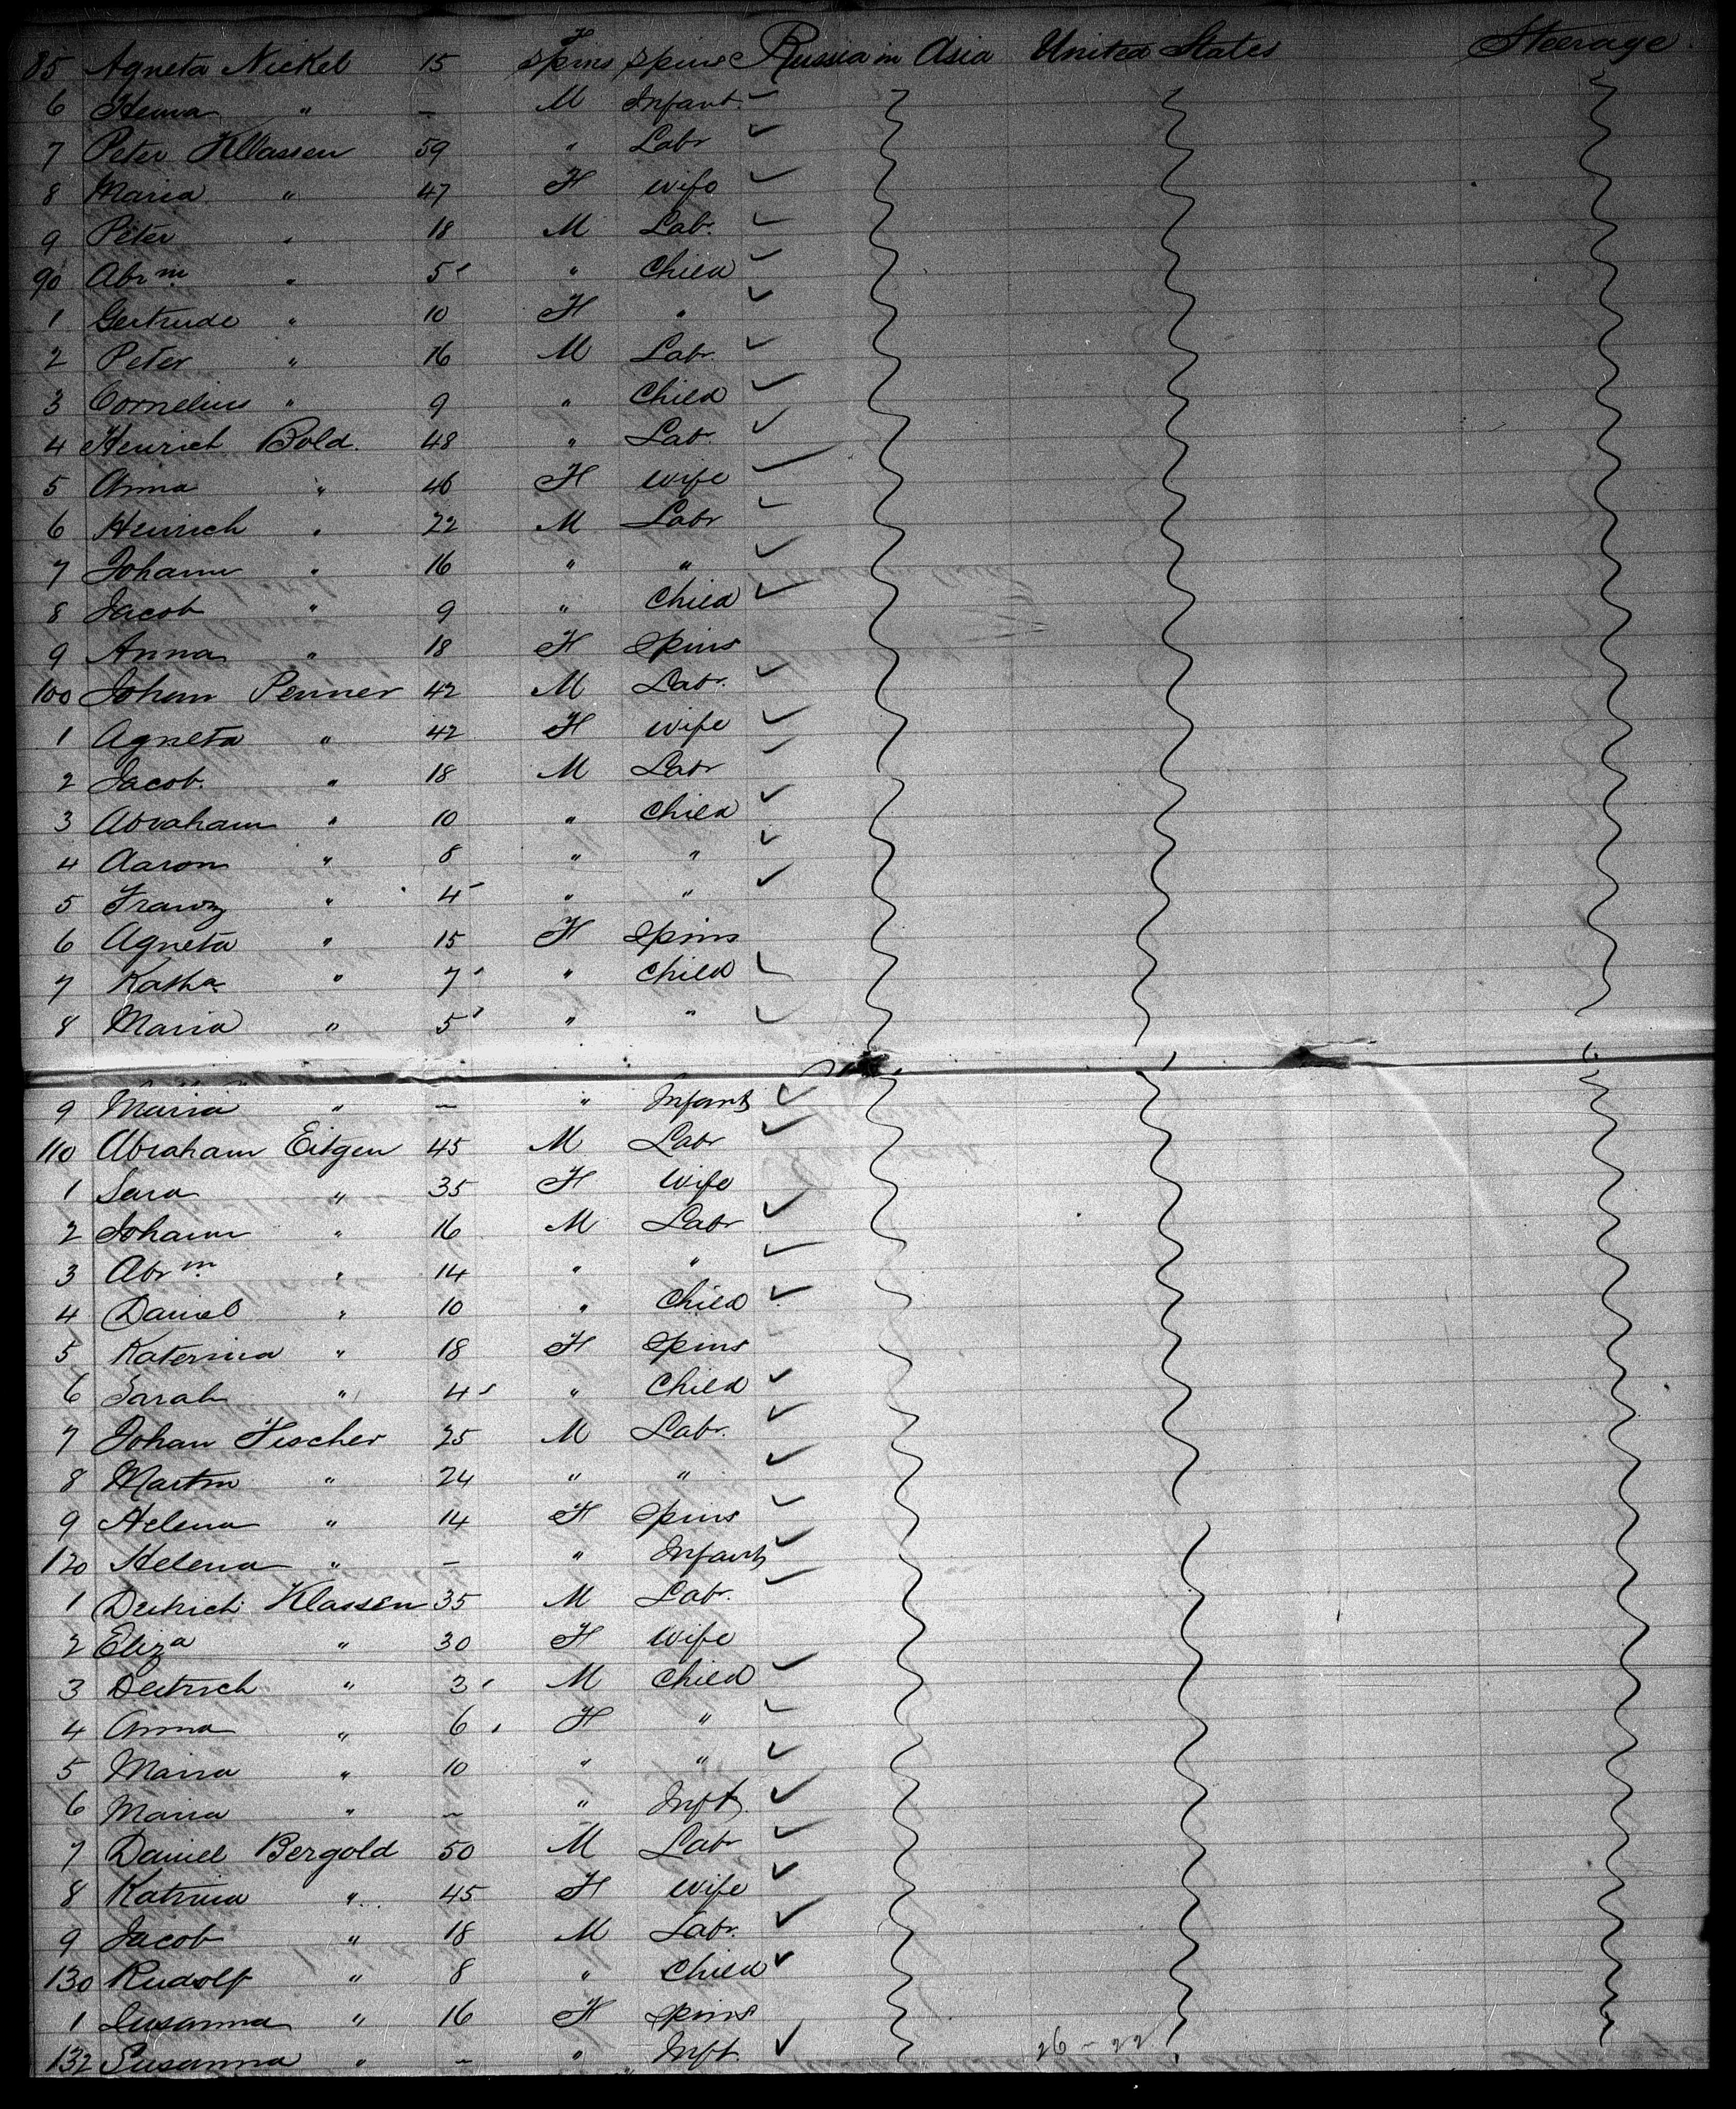 85 Agneta Nickel 15 F Spins Spins Russia in Asia United States Steerage
6 " – M Infant
7 Peter Klassen 59 " Labr
8 Maria " 47 F Wife
9 Peter " 18 M Lab.
90 Abrm " 5 " Child
1 Gertrude " 10 F "
2 Peter " 16 M Labr
3 Cornelius " 9 " Child
4 Henrich Bold. 48 " Lab.
5 Anna " 46 F Wife
6 Heinrich " 22 M Labr
7 Johann " 16 " "
8 Jacob " 9 " Child
9 Anna " 18 F Spins
100 Johann Penner 42 M Labr.
1 Agneta " 42 F Wife
2 Jacob. " 18 M Labr
3 Abraham " 10 " Child
4 Aaron " 8 " "
5 Franz " 4 " "
6 Agneta " 15 F Spins
7 Katha " 7 " Child
8 Maria " 5 " "
9 Maria " – " Infant
110 Abraham Eitgen 45 M Labr
1 Sara " 35 F Wife
2 Johann " 16 M Labr
3 Abrm " 14 " "
4 Daniel " 10 " Child
5 Katerina " 18 F Spins
6 Sarah " 4 " Child
7 Johan Fischer 25 M Labr.
8 Martin " 24 " "
9 Helena " 14 F Spins
120 Helena " – " Infant
1 Deitrich Klassen 35 M Labr.
2 Eliza " 30 F Wife
3 Deitrich " 3 M Child
4 Anna " 6 F "
5 Maria " 10 " "
6 Maria " – " Inft.
7 Daniel Bergold 50 M Labr
8 Katrina " 45 F Wife
9 Jacob " 18 M Labr.
130 Rudolf " 8 " Child
1 Susanna " 16 F Spins
132 Susanna " – " Inft. 26 – 22